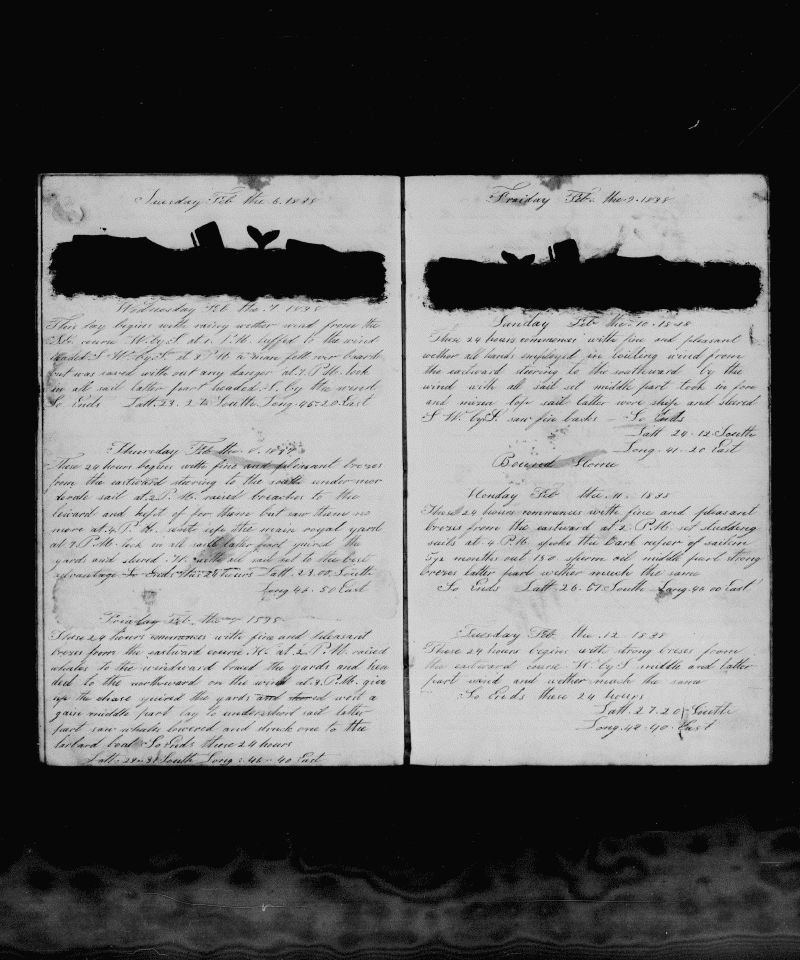 Tuesday Feb the 6. 1838
Wednesday Feb the 7 1838
This day begins with raisey wether wind from the
course W. by S. at 1. P.M. luffed to the wind
headed S W. by S. at 8 P.M a man fell over board
but was saved with out any danger at 7. P.M. took
in all sail latter part headed S. by the wind
So Ends Latt. 23. 2 South Long. 45-20 East
Thursday Feb the 8. 1838
These 24 hours begins with fine and plesant brezes
from the eastward stering to the south under mor
derate sail at 2. P. M. raised breaches to the
leward and kept of for them but saw them no
more at 4 P. M. sent up the main royal yard
at 7. P.M. took in all sail latter part quired the
yards and stered W. with all sail set to the best
advantage So Ends this 24 hours Latt. 23.00 South
Long 45-50 East
Friaday Feb the 1838
These 24 hours commences with fine and plesant
brezes from the eastward course W. at 2. P.M. raised
whales to the windward braced the yards and hea
ded to the northward on the wind at 3. P.M. give
up the chase quired the yards and stered west a
gain middle part lay to under short sail latter
part saw whales lowered and struck one to the
larbard boat So Ends these 24 hours
Latt. South Long: 45-40 East
Fraiday Feb. the 9. 1838
Sunday Feb the 10. 1838
These 24 hours commences with fine and pleasant
wether all hands employed in bouling wind from
the eastward stering to the southward by the
wind with all sail set middle part took in fore
and mizen top sail latter wore ship and stered
S W. by S. saw fin backs - So Ends
Latt 24-12 South
Long. 41-20 East
Bound Home
Monday Feb the 11. 1838
These 24 hours commences with fine and pleasant
brezes from the eastward at 2 P.M set studding
sails at 4 P.M. spoke the Bark of
months out 150 sperm oil middle part strong
brezes latter part wether much the same
So Ends Latt 26-51 South Long. 45 00 East
Tuesday Feb the 12 1838
These 24 hours begins with strong brezes from
the eastward course W. by S middle and latter
part wind and wether much the same
So Ends these 24 hours
Latt. 27.20 South
Long. 42-40 East